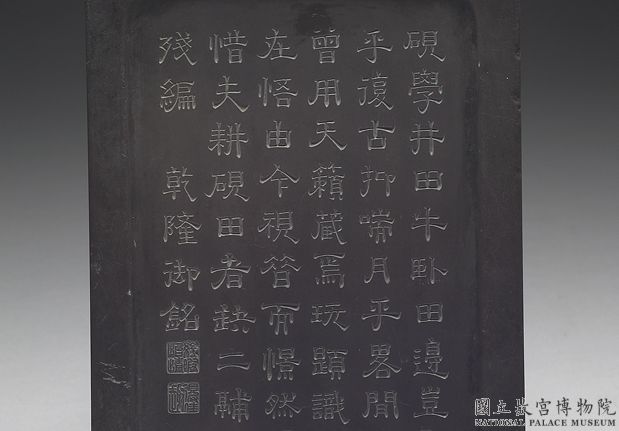 硯學井田牛卧田邊豈
乎復古抑喘月乎畧閒
曾用天籟蔵焉玩題識
在悟由今視昔而憬然
惜夫耕硯田者缺二輔
殘編 乾隆御銘
國立故宮博物院
NATIONAL PALACE MUSEUM